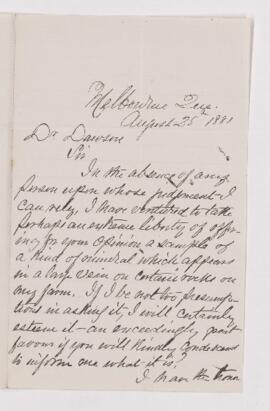 Melbourne Que.
August 25 1881
Dr Dawson
Sir
In the absence of any
person upon whose judgment I
can rely, I have ventured to take
perhaps an extreme liberty of offer-
ing for your opinion a sample of
a kind of mineral which appears
in a large vein on certain rocks on
my farm. If I be not too presump-
tious in asking it, I will certainly
esteem it an exceedingly great
favour if you will kindly condescend
to inform me what it is?
I have the honor